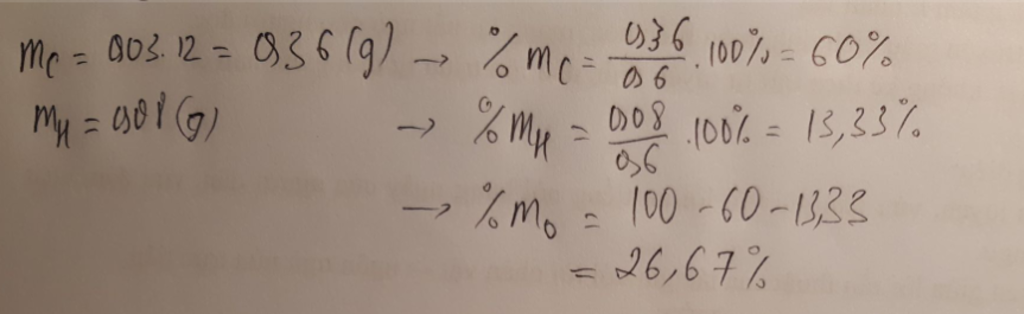 m_C = 0,03.12 = 0,36 (g) → %m_C = 0,36/0,6 .100% = 60%
m_H = 0,08 (g) → %m_H = 0,08/0,6 .100% = 13,33%
→ %m_O = 100 - 60 - 13,33
= 26,67%